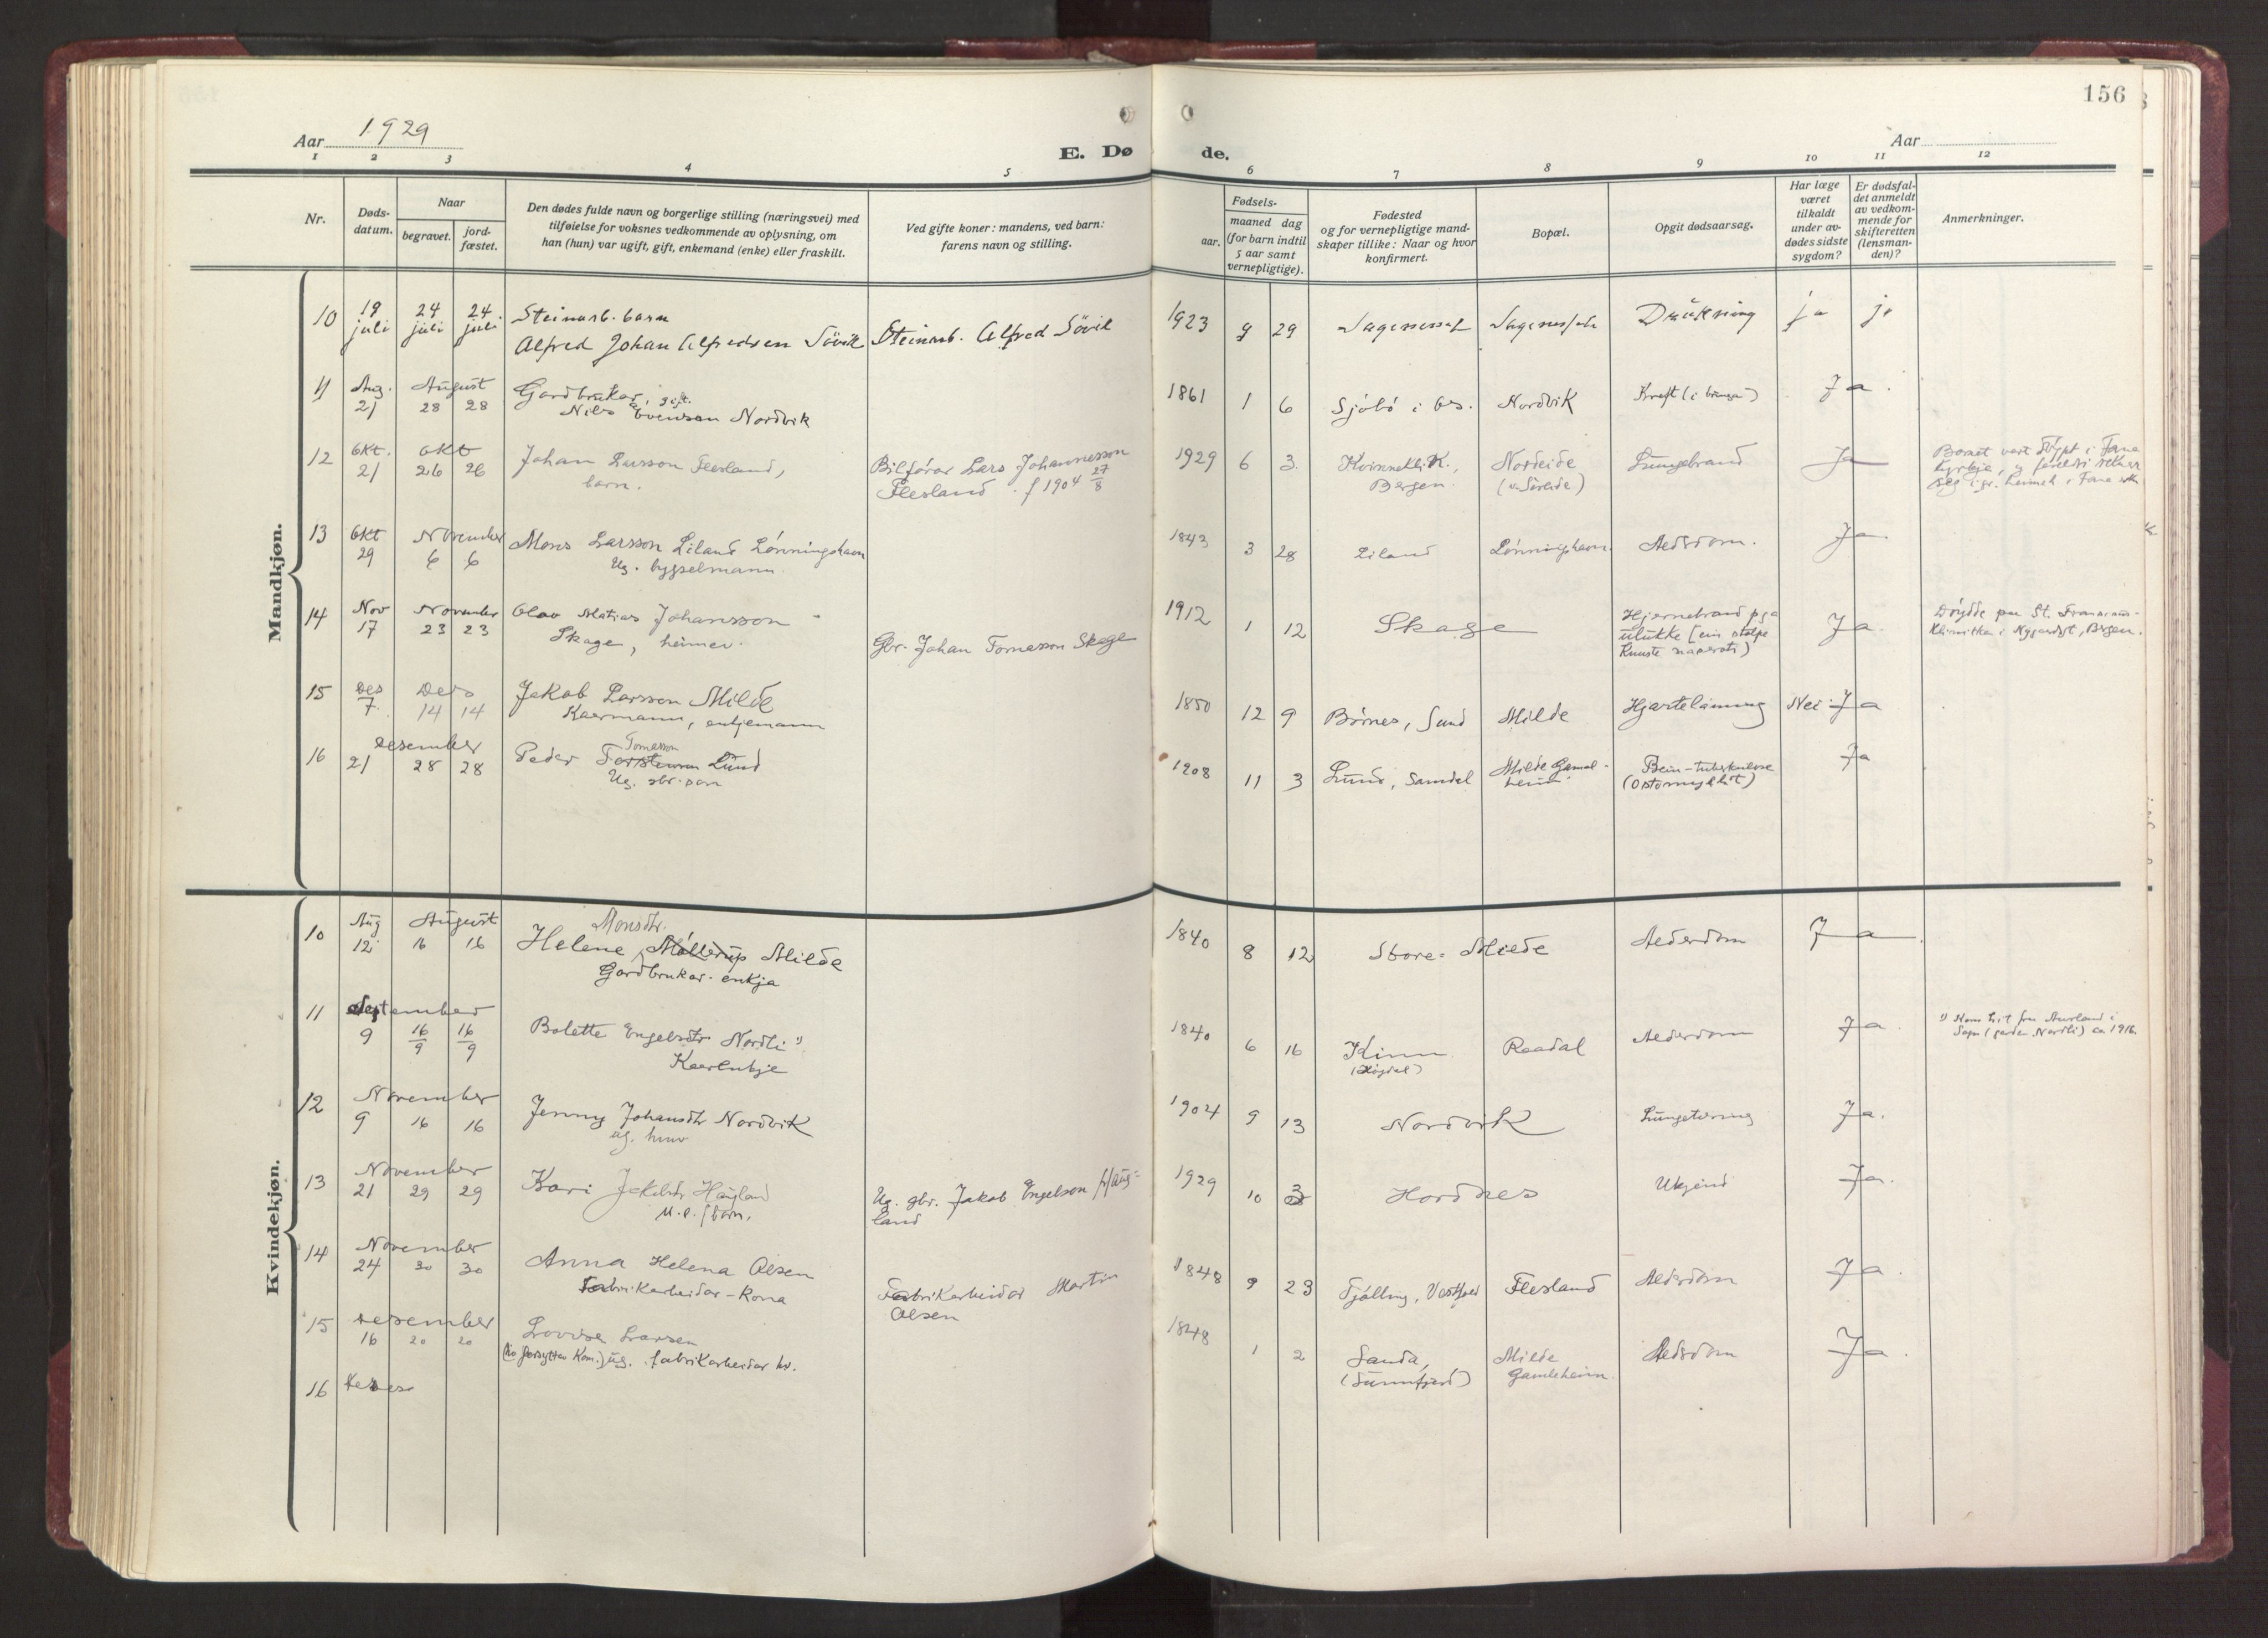 156
Aar 1929
E. Døde.
Aar
1 2 3 4 5 6 7 8 9 10 11 12
Nr.
Døds-
datum.
Naar
begravet.
jord-
fæstet.
Den dødes fulde navn og borgerlige stilling (næringsvei) med
tilføielse for voksnes vedkommende av oplysning, om
han (hun) var ugift, gift, enkemand (enke) eller fraskilt.
Ved gifte koner: mandens, ved barn:
farens navn og stilling.
Fødsels-
aar.
maaned dag
(for barn indtil
5 aar samt
vernepligtige).
Fødested
og for vernepligtige mand-
skaper tillike: Naar og hvor
konfirmert.
Bopæl.
Opgit dødsaarsag.
Har læge
været
tilkaldt
under av-
dødes sidste
sygdom?
Er dødsfal-
det anmeldt
av vedkom-
mende for
skifteretten
(lensman-
den)?
Anmerkninger.
Mandkjøn.
10 19 juli 24 juli 24 juli
Steinarb. barn
Alfred Johan Alfredsen Søvik
Steinarb. Alfred Søvik
1923 9 29
Drukning ja ja
11 Aug. 21 August 28 28
Gardbrukar, gift.
Nils Evenson Nordvik
1861 1 6
Sjøbø i Os. Nordvik
Kreft (i Ja.
12 Okt. 21 Okt 26 26
Johan Larsson Flesland,
barn.
Bilførar Lars Johannesson
Flesland. f 1904 27/8
1929 6 3
Kvinneklik., Bergen.
Nordeide
Lungebrand Ja
Barnet vart døypt i Fana
kyrkje, og foreldri reknar
seg
13 Okt 29 November 6 6
Mons Larsson Liland Lønningshavn
Ug. bygselmann.
1843 3 28
Liland Lønningshavn. Aldrdom. Ja.
14 Nov 17 November 23 23
Olav Matias Johansson
Skage, heimev.
Gbr. Johan Tomasson Skage
1912 1 12
Skage
Hjernebrand pga
ulukke (ein stolpe
knuste
Ja.
Døydde paa St. Franciscus-
klinikken i Nygaardsgt, Bergen.
15 Des 7 Des 14 14
Jakob Larsson Milde
Kaarmann, enkjemann
1850 12 9
Børnes, Sund Milde Hjartelaming Nei Ja
16 Desember 21 28 28
Tomasson
Peder Torsteinson Lund
Ug. gbr. son
1908 11 3
Lund, Samdal
Milde Gamal-
heim.
Bein-tuberkulose
Ja
Kvindekjøn.
10 Aug 12 August 16 16
Monsdtr.
Helene Møllerup Milde
Gardbrukar-enkja
1840 8 12
Store-Milde Alderdom Ja.
11 September 9 16/9 16/9
Bolette Engelsdtr Nordli 1)
Kaarenkje
1840 6 16
Kinn
Raadal
Alderdom Ja
1) Kom hit fraa Aurland i
Sogn (garden Nordli) ca 1916.
12 November 9 16 16
Jenny Johansdtr Nordvik
ug.
1904 9 13
Nordvik Lungetæring Ja.
13 November 21 29 29
Kari Jakobsdtr Haugland
u.e. barn.
Ug. gbr. Jakob Engelson Haug-
land
1929 10 3
Hordnes Ukjend Ja.
14 November 24 30 30
Anna Helena Olsen
Fabrikarbeidar-kona
Fabrikarbeidar Martin
Olsen
1848 9 23
Tjølling, Vestfold Flesland Aldrdom Ja.
15 Desember 16 20 20
Lovise Larsen
ug. fabrikarbeidar
1848 1 2
Sanda,
(Sunnfjord)
Milde
Gamleheim.
Aldrdom Ja.
16 Desem